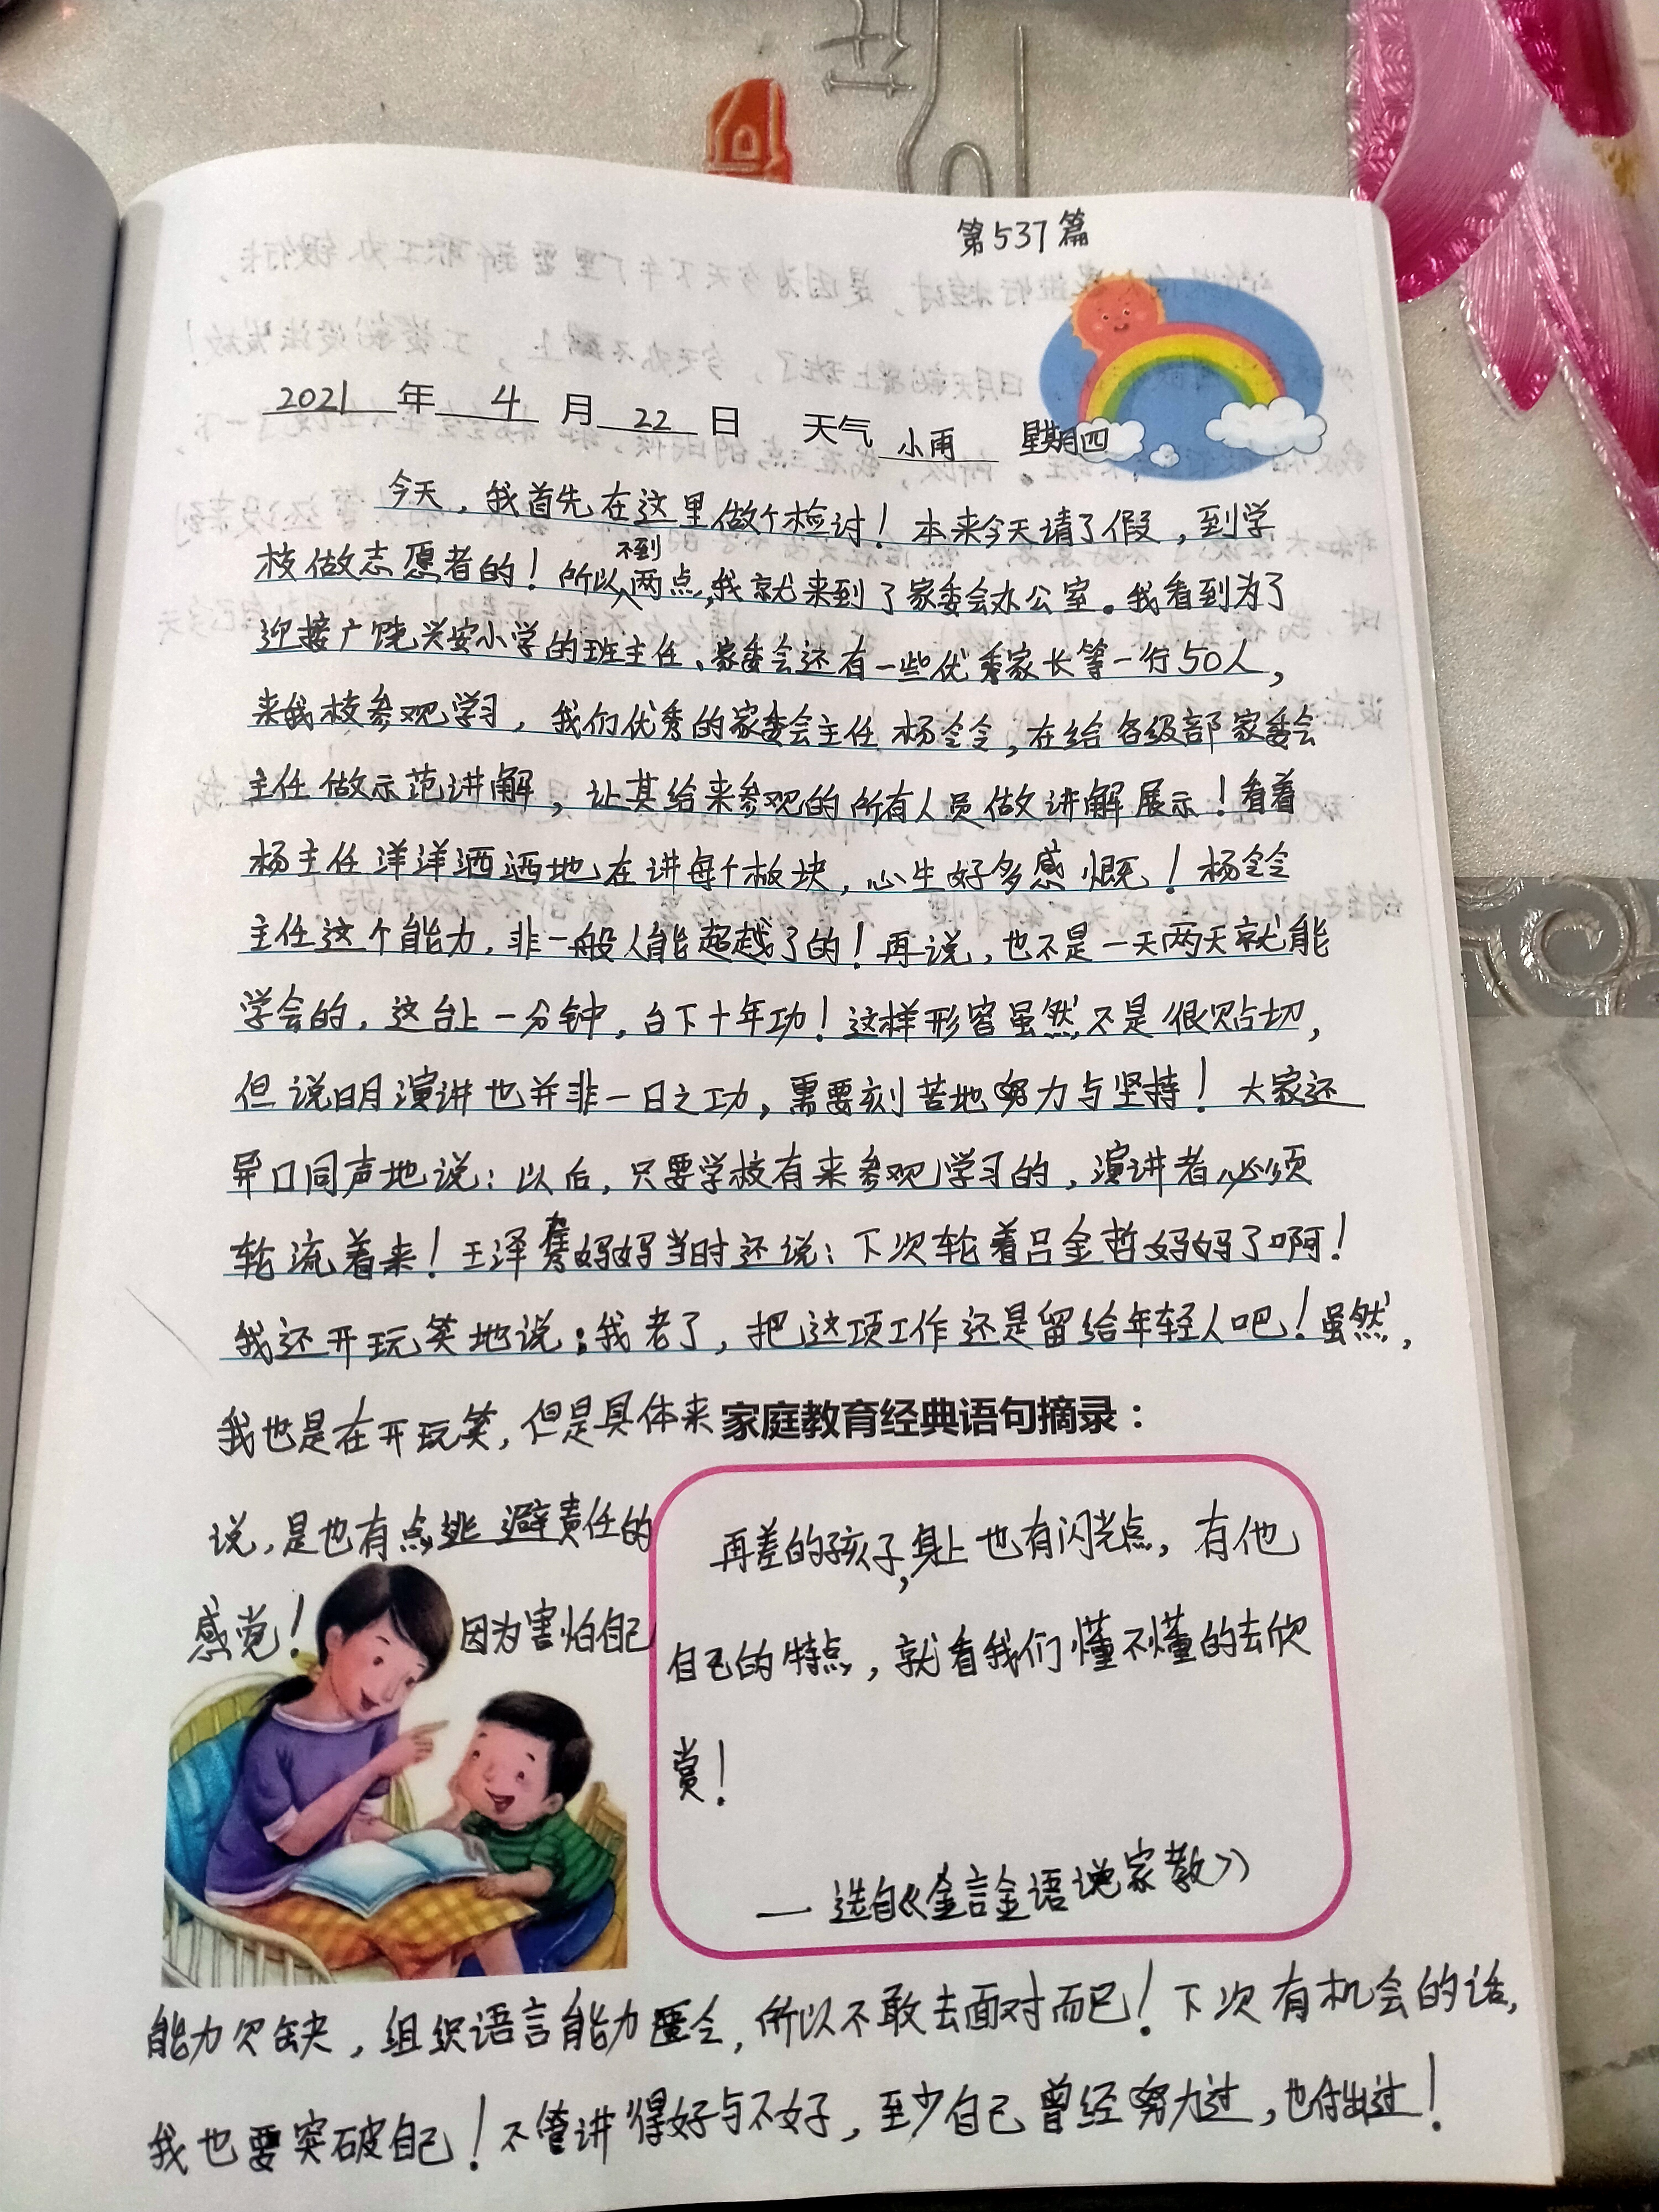 第537篇
2021年4月22日 天气小雨 星期四
今天，我首先在这里做个检讨！本来今天请了假，到学
校做志愿者的！所以不到两点，我就来到了家委会办公室。我看到为了
迎接广饶兴安小学的班主任、家委会还有一些优秀家长等一行50人，
来我校参观学习，我们优秀的家委会主任杨伶伶，在给各级部家委会
主任做示范讲解，让其给来参观的所有人员做讲解展示！看着
杨主任洋洋洒洒地在讲每个板块，心生好多感慨！杨伶伶
主任这个能力，非一般人能超越了的！再说，也不是一天两天就能
学会的，这台上一分钟，台下十年功！这样形容虽然不是很贴切，
但说明演讲也并非一日之功，需要刻苦地努力与坚持！大家还
异口同声地说：以后，只要学校有来参观学习的，演讲者必须
轮流着来！王泽骞妈妈当时还说：下次轮着吕金哲妈妈了啊！
我还开玩笑地说：我老了，把这项工作还是留给年轻人吧！虽然，
我也是在开玩笑，但是具体来
说，是也有点逃避责任的
感觉！因为害怕自己
家庭教育经典语句摘录：
再差的孩子，身上也有闪光点，有他
自己的特点，就看我们懂不懂的去欣
赏！
—选自《金言金语说家教》
能力欠缺，组织语言能力匮乏，所以不敢去面对而已！下次有机会的话，
我也要突破自己！不管讲得好与不好，至少自己曾经努力过，也付出过！